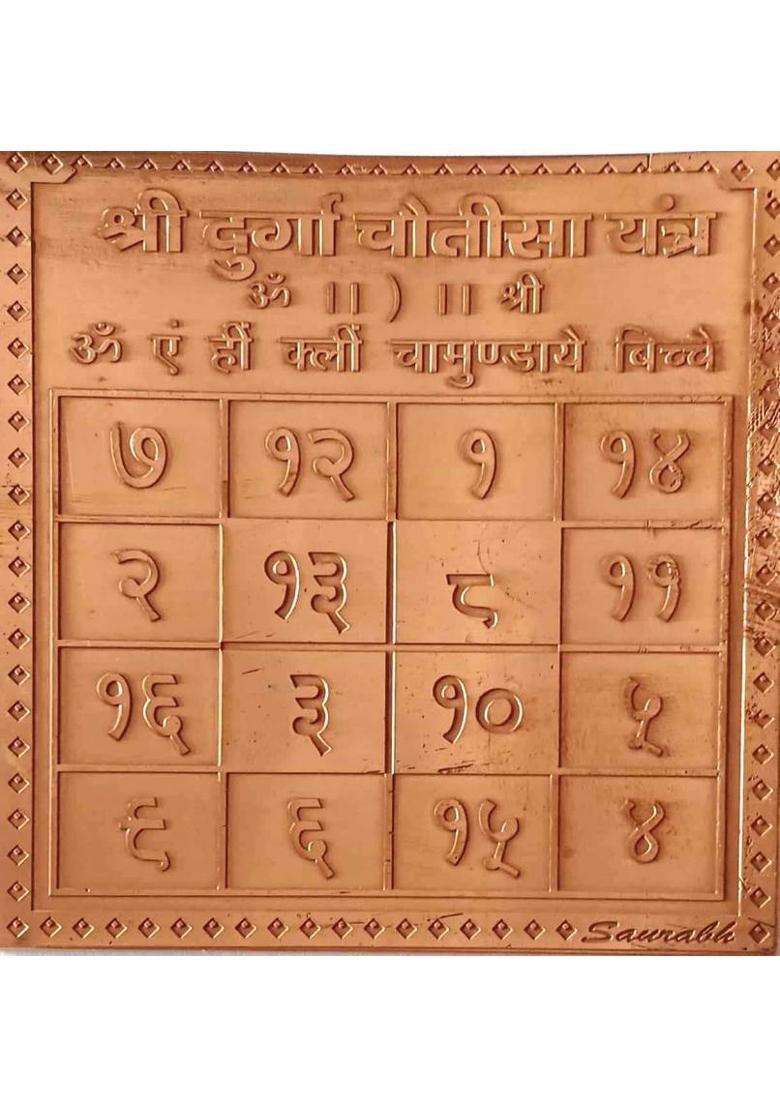 श्री दुर्गा चौतीसा यंत्र
ॐ ।। ) ।। श्री
ॐ एं ह्रीं क्लीं चामुण्डाये बिच्चे
७ १२ १ १४
२ १३ ८ ११
१६ ३ १० ५
९ ६ १५ ४
Saurabh